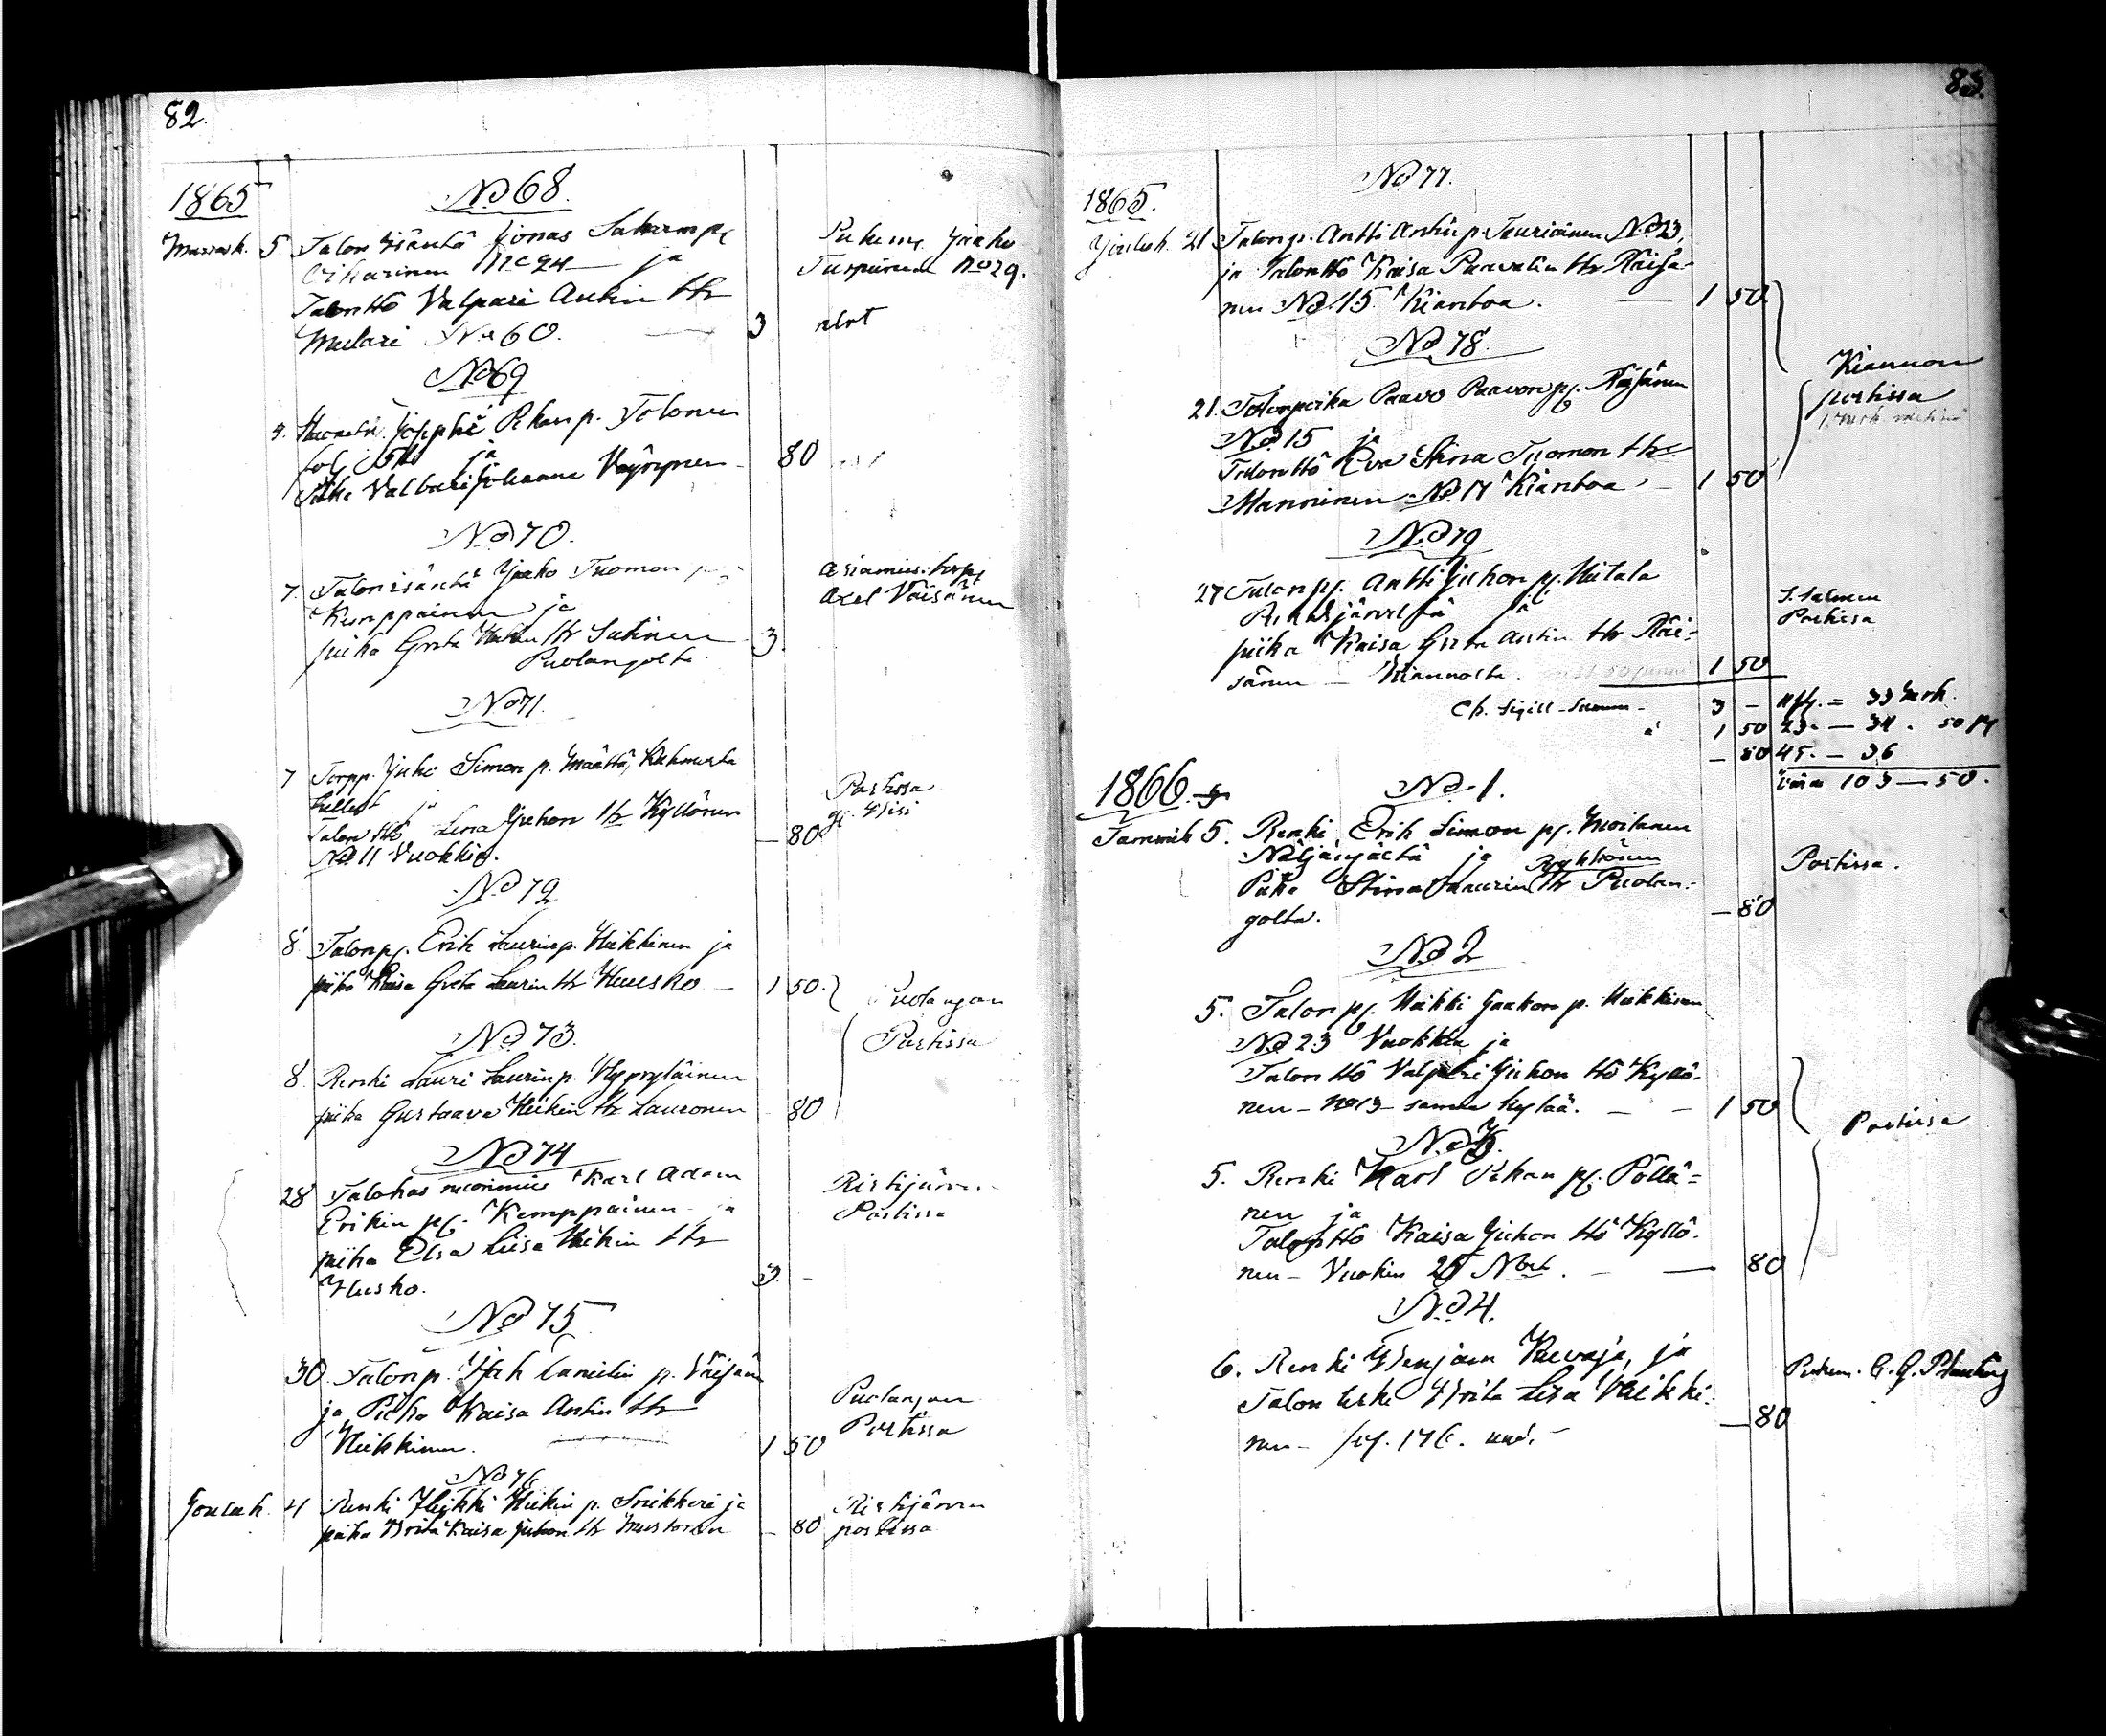 82.
1865
No 68.
Marrask. 5. Talon isäntä Jonas Sakarin pj
No 24 ja
Talon ttö Valpuri Antin ttr
Mulari No 60. 3
Puhem. Jaako
Turpeinen No 29.
No 69
Pekan p. Tolonen
ja
Piika Valbori Johanna Väyrynen 80
No 70.
7. Talon isäntä Jaako Tuomon
Kemppainen ja
piika Greta ttr Latinen 3
Puolangolta
Asiamies: torp.
Axel Väisänen
No 71.
7 Torpp. Juho Simon p. Määttä,
ja
Talon ttö Lena Juhon ttr Kyllönen
No 11 Vuokki. — 80
Postissa
No 72
8. Talon pj. Erik Laurin p. Heikkinen ja
piika Kaisa Greta Laurin ttr Huusko — 1 50.
No 73.
8. Renki Lauri Laurin p.
piika Gustaava Heikin ttr Lauronen 80
Puolangan
Postissa
No 74
28 Karl Adam
Erikin pj. Kemppainen ja
piika Elsa Liisa Heikin ttr
Husko. 3. -
Ristijärven
Postissa
No 75
30. Talon p. p. Väisänen
ja Piika Kaisa Antin ttr
Heikkinen. 1 50
Puolangan
Postissa
No 76
Jouluk. 4 Renki Heikki Heikin p. Snikkeri ja
piika Brita Kaisa Juhon ttr Mustonen — 80
Ristijärven
postissa
83.
No 77.
1865.
Jouluk. 21 Talon p. Antti Antin p. Tauriainen No 23,
ja Talon ttö Kaisa Paavalin ttr Räisä-
nen No 15. Kiantoa. 1 50
No 78.
21. Talonpoika Paavo Paavon pj. Räisänen
No 15 ja
Talon ttö Eva Stina Tuomon ttr
Manninen No 17 Kiantoa — 1 50
Kiannon
postissa
No 79
27 Talon pj. Antti Juhon pj. Heitala
ja
piika Kaisa Greta Antin ttr Räi-
sänen — Kiannolta. 1 50
S. Salmen
Postissa
Ch. Sigill. Summa - 3 - 11 = 33 Mrk.
1 50 23. — 34. 50 p
— 80 45. — 36
103 — 50.
1866.
No 1.
Tammik 5. Renki Erik Simon pj. Moilanen
Näljängältä ja
Piika Stina Laurin ttr Puolan-
golta. — 80
Postissa.
No 2
5. Talon pj. Heikki Jaakon p. Heikkinen
No 23 Vuokkia ja
Talon ttö Valpuri Juhon ttö Kyllö-
nen - No 13 - samaa kylää. — — 1 50
No 3.
5. Renki Karl Pekan pj. Pöllä-
nen ja
Talon ttö Kaisa Juhon ttö Kyllö-
nen - Vuokin 25 . — — 80
Postissa
No 4.
6. Renki Benjam Kuvaja, ja
Talon leski Brita Lisa Heikki-
nen - 176. — 80
Puhem. C. G. Planting